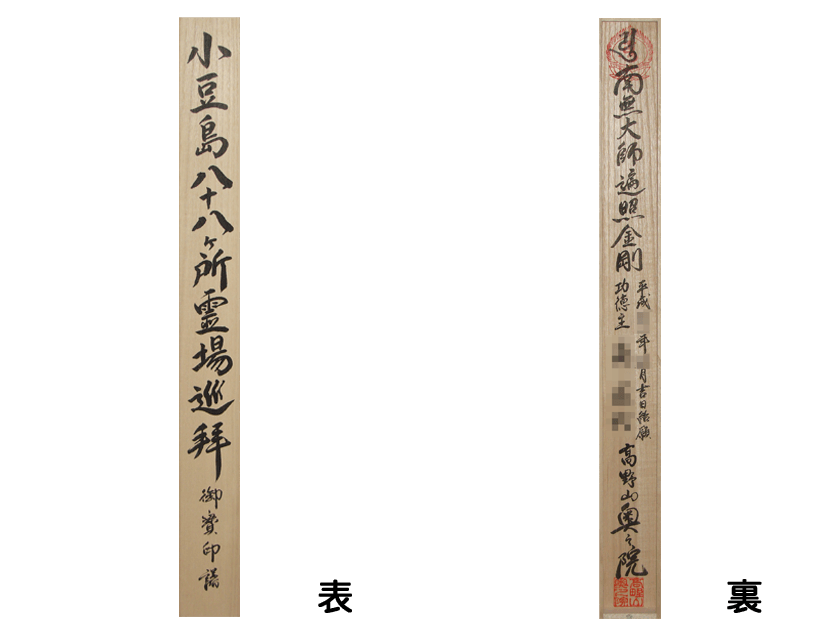 小豆島八十八ヶ所霊場巡拝
御寳印譜
表
南無大師遍照金剛
平成 年 月吉日結願
功徳主
高野山奥之院
裏